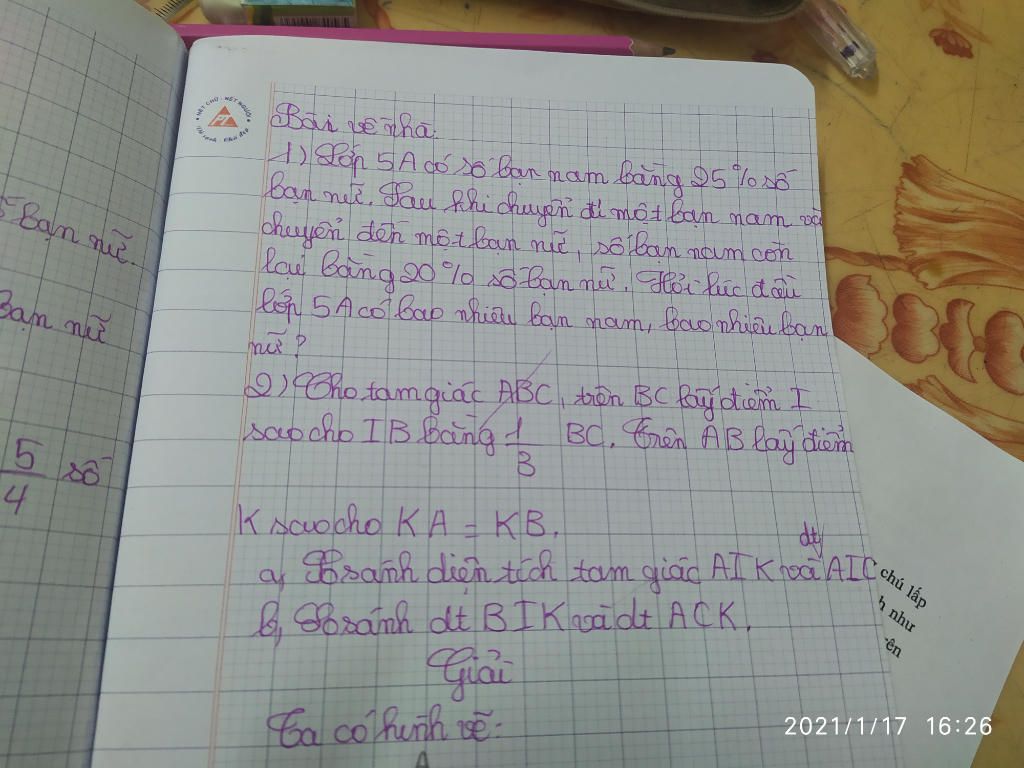 NÉT CHỮ - NẾT NGƯỜI
PT
5 bạn nữ.
Bạn nữ
5
4
số
Bài về nhà.
1) Lớp 5A có số bạn nam bằng 25% số
bạn nữ. Sau khi chuyển đi một bạn nam và
chuyển đến một bạn nữ, số bạn nam còn
lại bằng 20% số bạn nữ. Hỏi lúc đầu
lớp 5A có bao nhiêu bạn nam, bao nhiêu bạn
nữ?
2) Cho tam giác ABC, trên BC lấy điểm I
sao cho IB bằng 1/3 BC. Trên AB lấy điểm
K sao cho KA = KB.
a, So sánh diện tích tam giác AIK và dt AIC
b, So sánh dt BIK và dt ACK.
Giải
Ta có hình vẽ:
A
chú lấp
h như
ên
2021/1/17 16:26